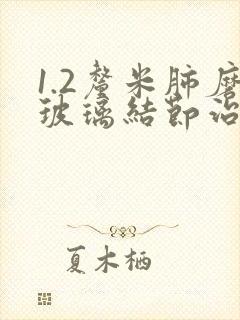 1.2釐米肺磨
玻璃結節治
夏木栖